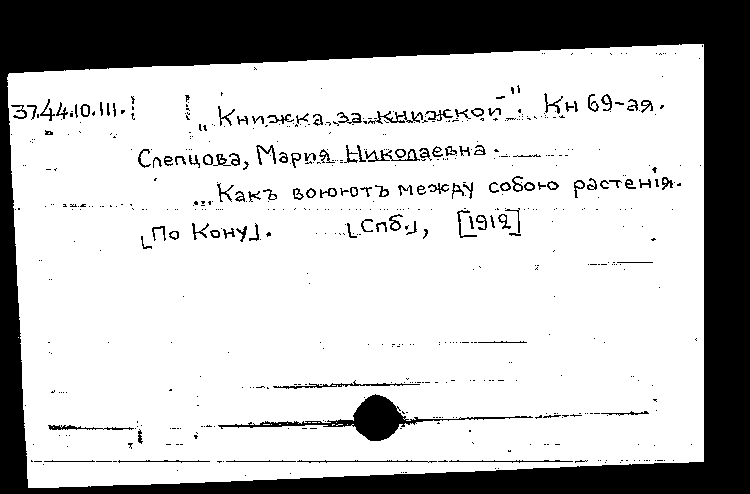 37.44.10.III. „Книжка за книжкой". Кн 69-ая.
Слепцова, Мария Николаевна.
...Какъ воюютъ между собою растенiя.
[По Кону]. [Спб.], [1912]